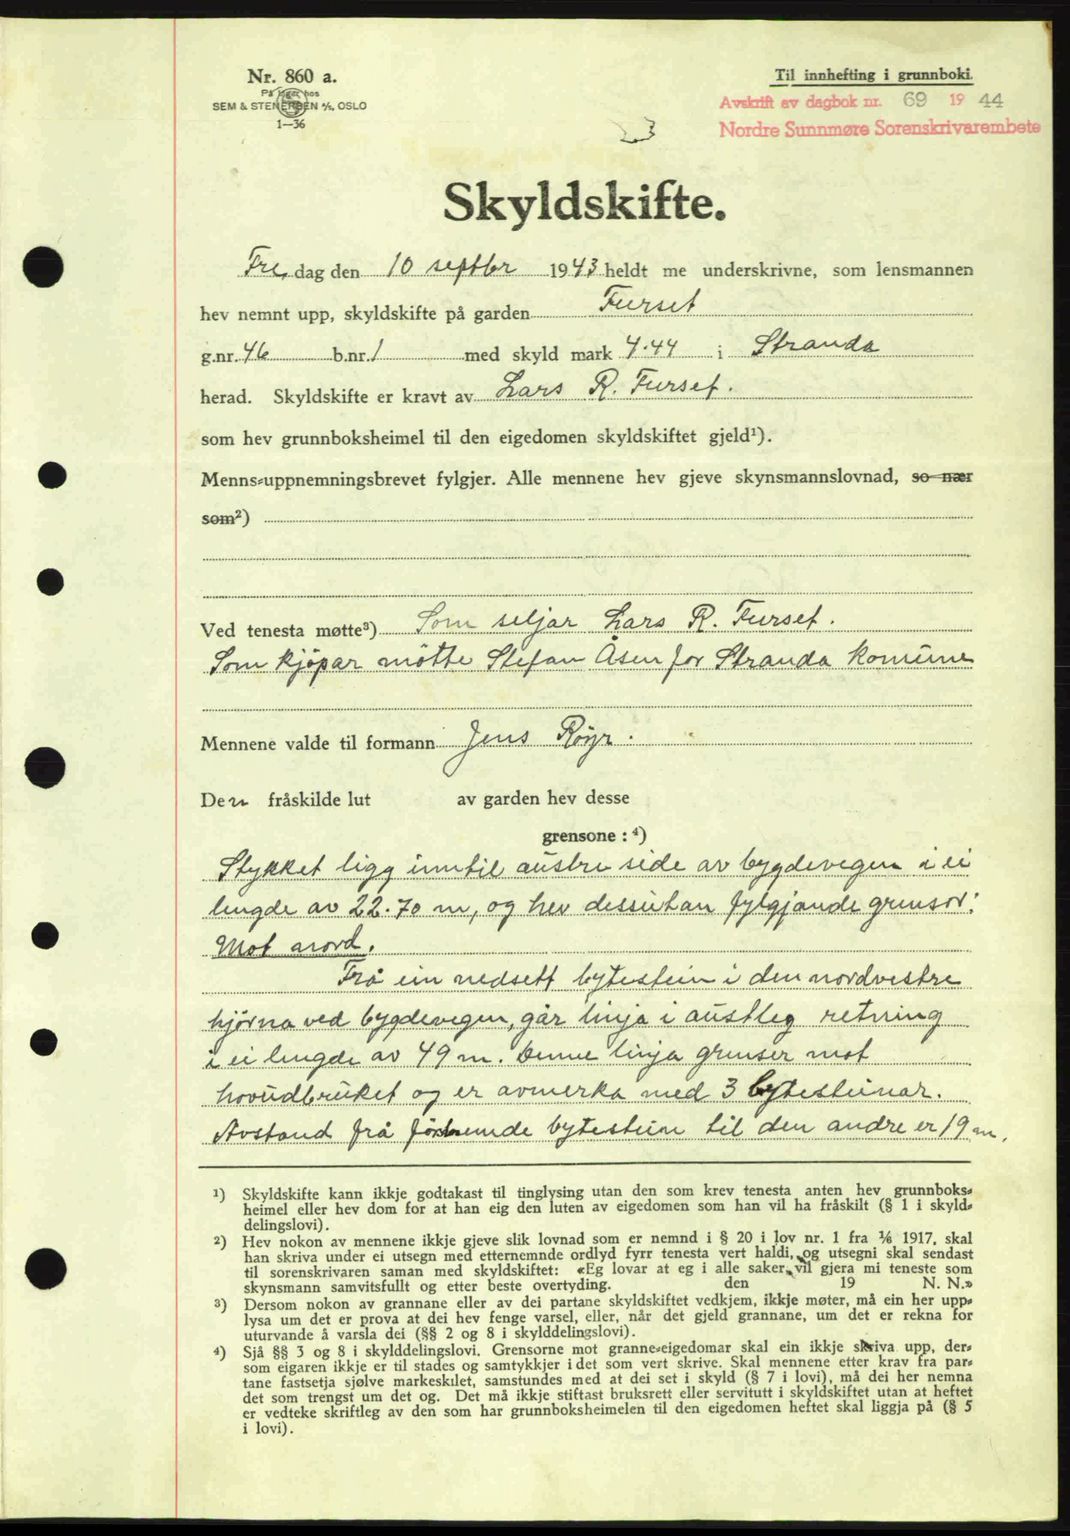 Nr. 860 a.
På lager hos
SEM & STENERSEN A/S, OSLO
1—36
Til innhefting i grunnboki.
Avskrift av dagbok nr. 69 1944
Nordre Sunnmøre Sorenskrivarembete
Skyldskifte.
Fredag den 10 septbr 1943 heldt me underskrivne, som lensmannen
hev nemnt upp, skyldskifte på garden Furset
g.nr. 46 b.nr. 1 med skyld mark 4.44 i Stranda
herad. Skyldskifte er kravt av Lars R. Furset.
som hev grunnboksheimel til den eigedomen skyldskiftet gjeld¹).
Menns-uppnemningsbrevet fylgjer. Alle mennene hev gjeve skynsmannslovnad, so nær
som²)
Ved tenesta møtte³) Som seljar Lars R. Furset.
Som kjöpar mötte Stefan Åsen for Stranda komune
Mennene valde til formann Jens Røyr.
Den fråskilde lut av garden hev desse
grensone : ⁴)
Stykket ligg inntil austre side av bygdevegen i ei
lengde av 22.70 m, og hev dessutan fylgjande grensor:
Mot nord.
Frå ein nedsett bytestein i den nordvestre
hjörna ved bygdevegen, går linja i austleg retning
i ei lengde av 49 m. Denne linja grenser mot
hovudbruket og er avmerka med 3 bytesteinar.
Avstand frå förstnemde bytestein til den andre er 19 m.
¹) Skyldskifte kann ikkje godtakast til tinglysing utan den som krev tenesta anten hev grunnboks-
heimel eller hev dom for at han eig den luten av eigedomen som han vil ha fråskilt (§ 1 i skyld-
delingslovi).
²) Hev nokon av mennene ikkje gjeve slik lovnad som er nemnd i § 20 i lov nr. 1 fra 1/6 1917, skal
han skriva under ei utsegn med etternemnde ordlyd fyrr tenesta vert haldi, og utsegni skal sendast
til sorenskrivaren saman med skyldskiftet: «Eg lovar at eg i alle saker vil gjera mi teneste som
skynsmann samvitsfullt og etter beste overtyding. den 19 N. N.»
³) Dersom nokon av grannane eller av dei partane skyldskiftet vedkjem, ikkje møter, må ein her upp-
lysa um det er prova at dei hev fenge varsel, eller, når det gjeld grannane, um det er rekna for
uturvande å varsla dei (§§ 2 og 8 i skylddelingslovi).
⁴) Sjå §§ 3 og 8 i skylddelingslovi. Grensorne mot granne-eigedomar skal ein ikkje skriva upp, der-
som eigaren ikkje er til stades og samtykkjer i det som vert skrive. Skal mennene etter krav fra par-
tane fastsetja sjølve markeskilet, samstundes med at dei set i skyld (§ 7 i lovi), må dei her nemna
det som trengst um det og. Det må ikkje stiftast bruksrett eller servitutt i skyldskiftet utan at heftet
er vedteke skriftleg av den som har grunnboksheimelen til den eigedomen heftet skal liggja på (§ 5
i lovi).